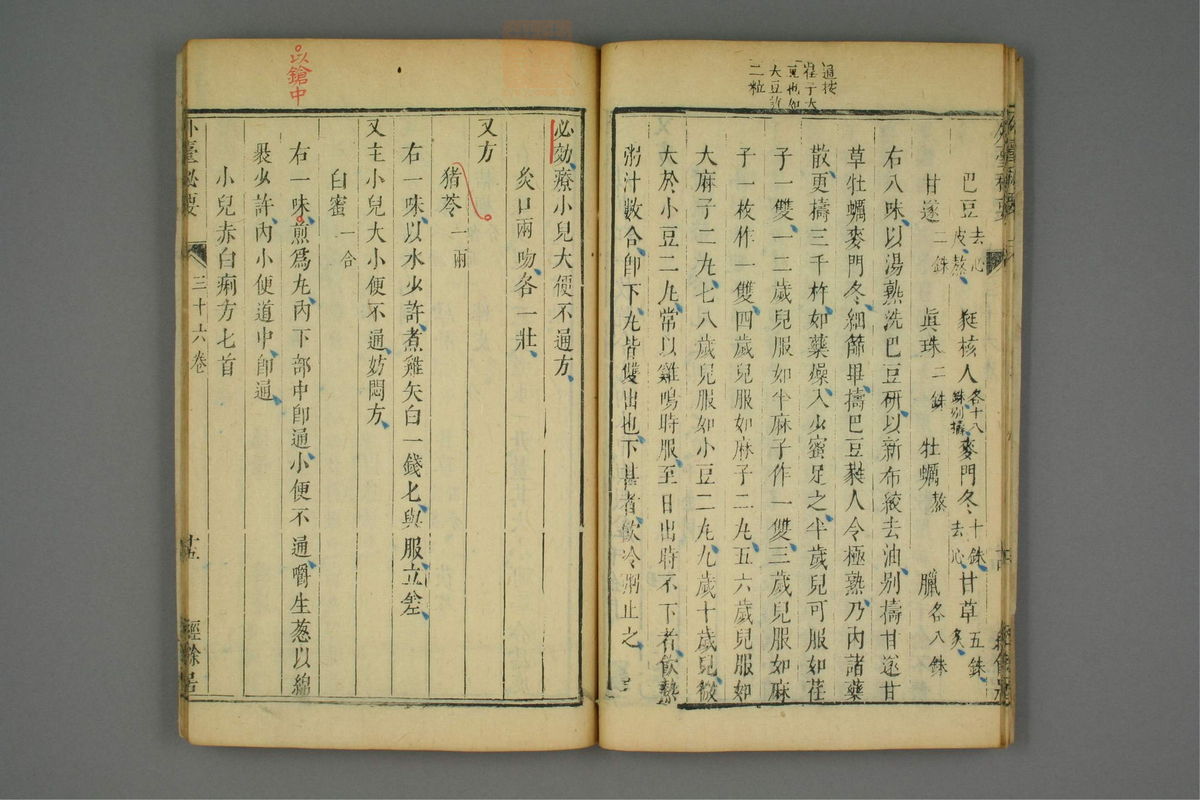 巴豆去心皮熬 蕤核人各十八銖別擣 麥門冬十銖去心 甘草五銖炙
甘遂二銖 眞珠二銖 牡蠣熬 臘各八銖
右八味以湯熟洗巴豆研以新布絞去油别擣甘遂甘
草牡蠣麥門冬細篩畢擣巴豆蕤人令極熟乃内諸藥
散更擣三千杵如藥燥入少蜜足之半歲兒可服如荏
子一雙一二歲兒服如半麻子作一雙三歲兒服如麻
子一枚作一雙四歲兒服如麻子二丸五六歲兒服如
大麻子二丸七八歲兒服如小豆二丸九歲十歲兒微
大於小豆二丸常以雞鳴時服至日出時不下者飲熱
粥汁數合卽下丸皆雙出也下甚者飲冷粥止之
必効療小兒大便不通方
灸口兩吻各一壯
又方
猪苓一兩
右一味以水少許煮雞矢白一錢匕與服立差
又主小兒大小便不通妨悶方
白蜜一合
右一味煎爲丸内下部中卽通小便不通嚼生葱以綿
裹少許内小便道中卽通
小兒赤白痢方七首
外臺祕要 三十六卷 十五 經餘居
以鎗中